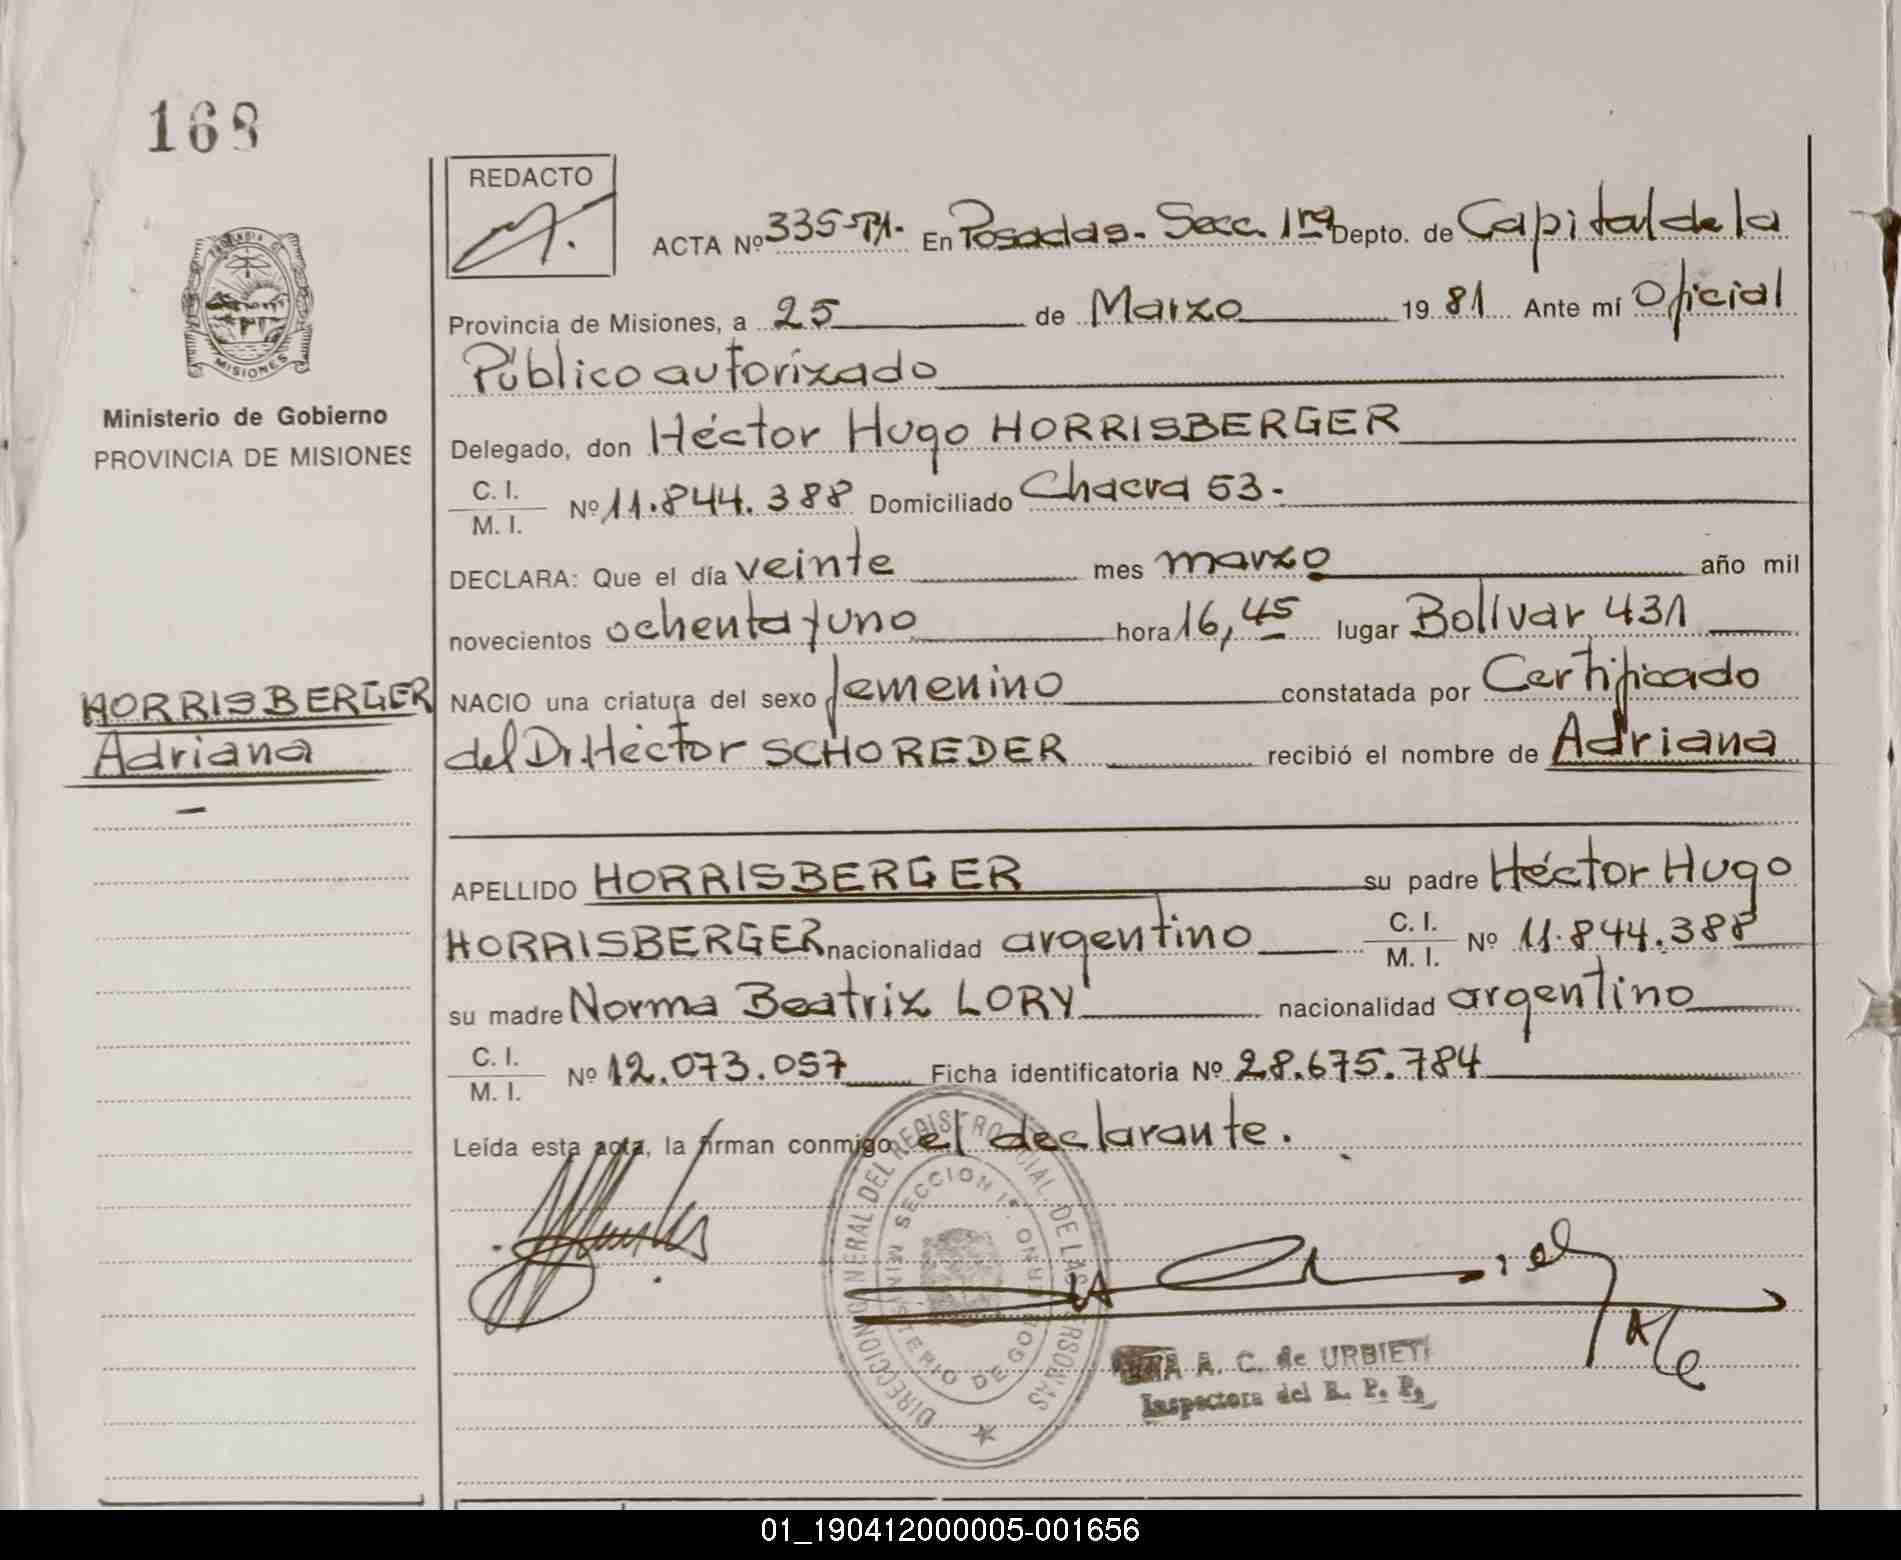 168
REDACTO
ACTA Nº 335-T1- En Posadas- Secc. 1ra Depto. de Capital de la
Provincia de Misiones, a 25 de Marzo 1981 Ante mí Oficial
Público autorizado
Ministerio de Gobierno
PROVINCIA DE MISIONES
Delegado, don Héctor Hugo HORRISBERGER
C. I.
M. I. Nº 11.844.388 Domiciliado Chacra 53-
DECLARA: Que el día veinte mes marzo año mil
novecientos ochenta y uno hora 16,45 lugar Bolívar 431
HORRISBERGER
Adriana
NACIO una criatura del sexo femenino constatada por Certificado
del Dr. Héctor SCHOREDER recibió el nombre de Adriana
APELLIDO HORRISBERGER su padre Héctor Hugo
HORRISBERGER nacionalidad argentino C. I. M. I. Nº 11.844.388
su madre Norma Beatriz LORY nacionalidad argentino
C. I.
M. I. Nº 12.073.057 Ficha identificatoria Nº 28.675.784
Leída esta acta, la firman conmigo el declarante.
DIRECCION GENERAL DEL REGISTRO DE LAS PERSONAS
SECCION 1ª
MINISTERIO DE GOBIERNO
A. C. de URBIETA
Inspectora del R. P. P.
01_190412000005-001656